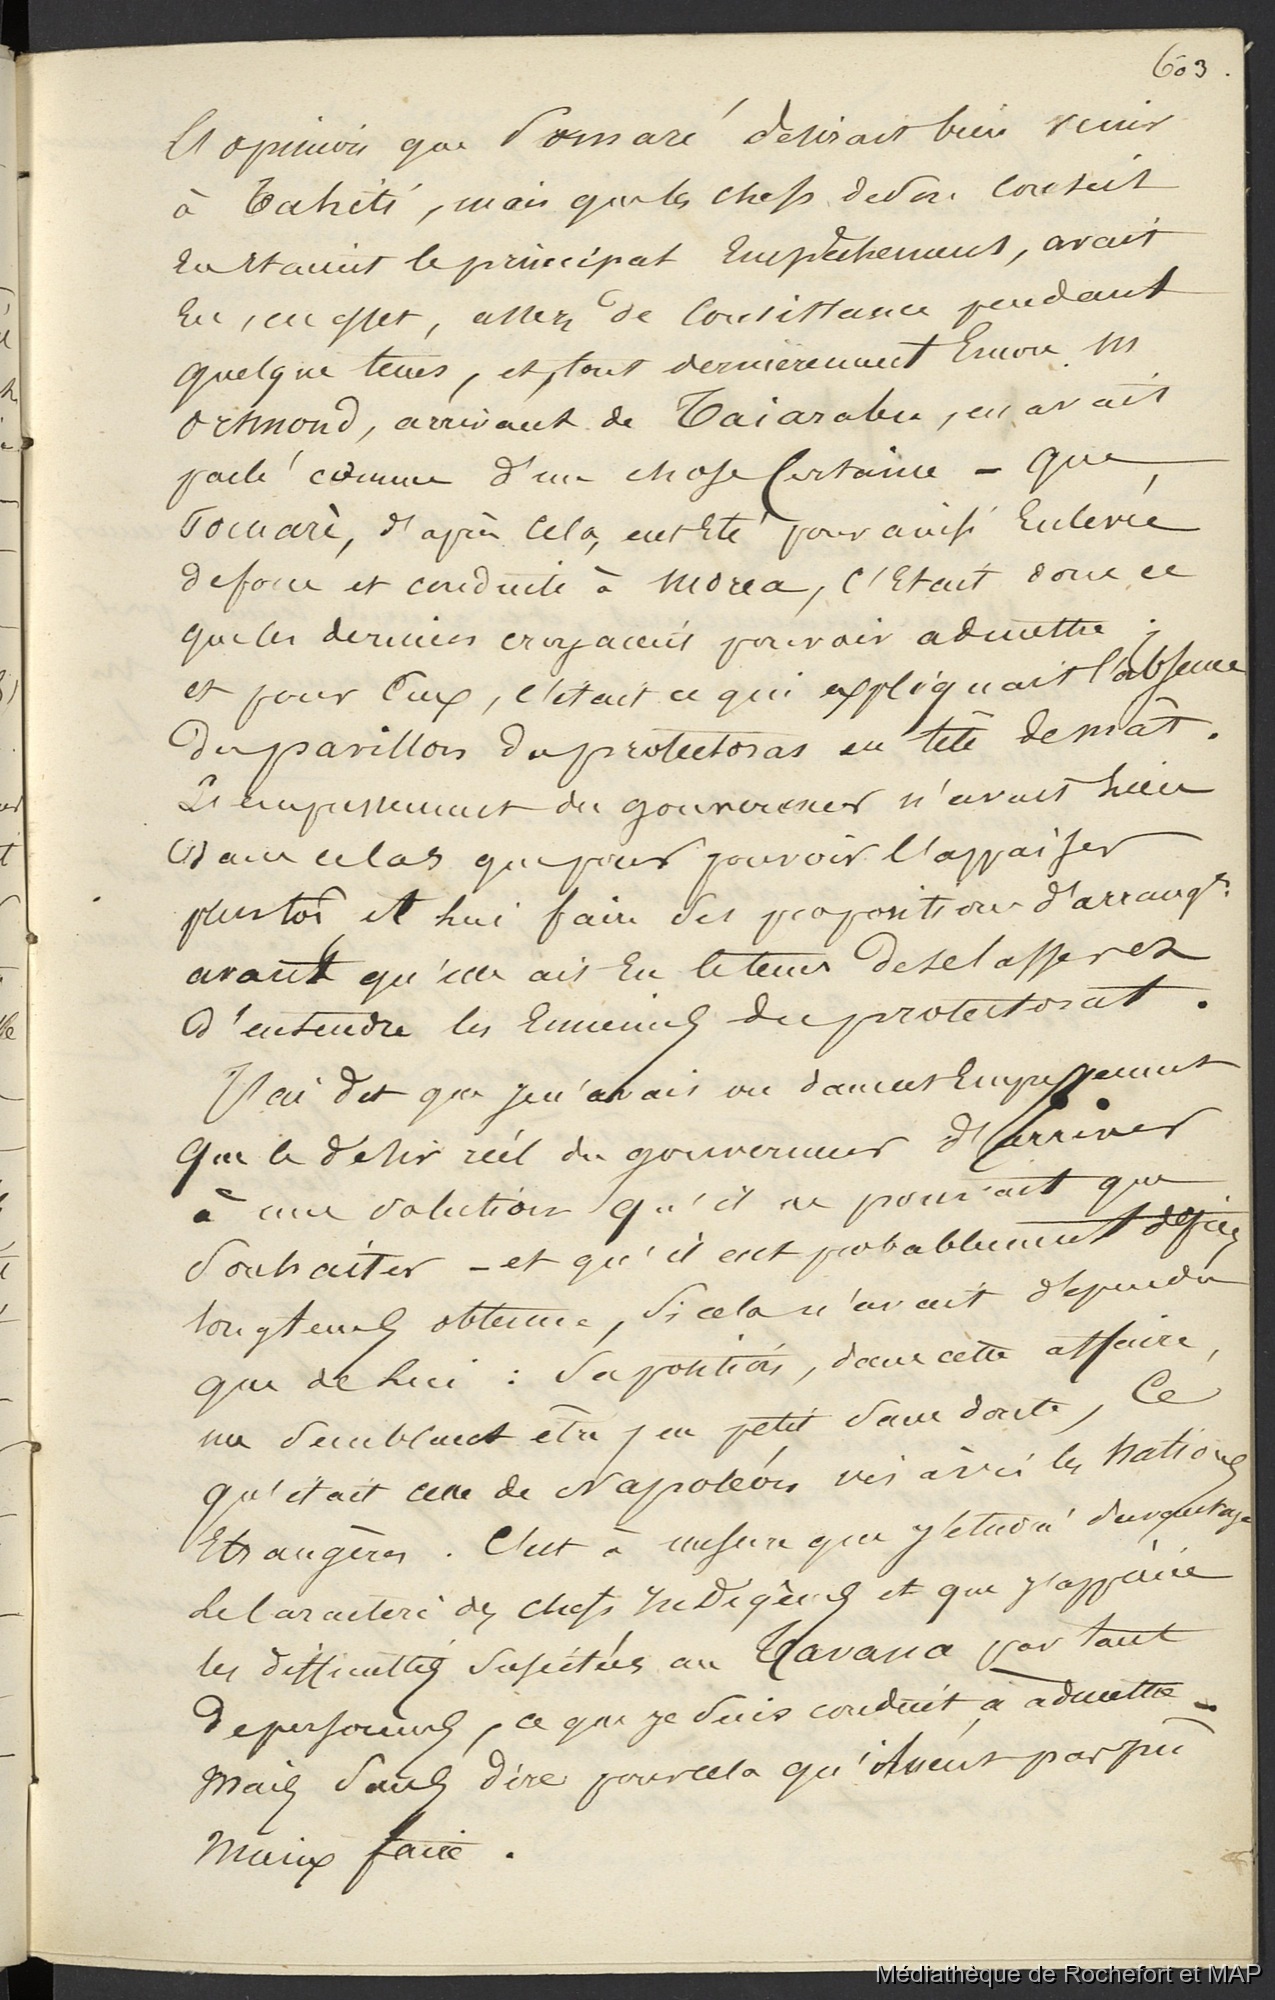 603.
L'opinion que Pomaré desirait bien venir
à Tahiti, mais que les chefs de son conseil
en étaient le principal empêchement, avait
eu, en effet, assez de consistance pendant
quelque tems, et, tout dernièrement encore M
Ormond, arrivant de Taiarabu, en avait
parlé comme d'une chose certaine - que
Pomaré, d'après cela, eut été pour ainsi enlevée
de force et conduite à Morea, c'était donc ce
que les derniers croyaient pouvoir admettre;
et pour eux, c'était ce qui expliquait l'absence
du pavillon du protectorat en tête de mât.
L'empressement du gouverneur n'avait lieu
dans ce cas que pour pouvoir l'appaiser
plustôt et lui faire des propositions d'arrangt.
avant qu'elle ait eu le tems de se lasser
d'entendre les ennemis du protectorat.
J'ai dit que je n'avais vu dans cet empressement
que le desir réel du gouverneur d'arriver
à une solution qu'il ne pouvait que
souhaiter - et qu'il eut probablement depuis
longtems obtenue, si cela n'avait dépendu
que de lui : sa position, dans cette affaire,
me semblant être, en petit sans doute, ce
qu'était celle de Napoléon vis à vis les nations
Etrangères. C'est à mesure que j'étudie davantage
le caractère des chefs indigènes et que j'apprécie
les difficultés suscitées au Tavana par tant
de personnes, ce que je suis conduit à admettre -
mais sans dire pour cela qu'il n'eût pas pu
mieux faire.
Médiathèque de Rochefort et MAP